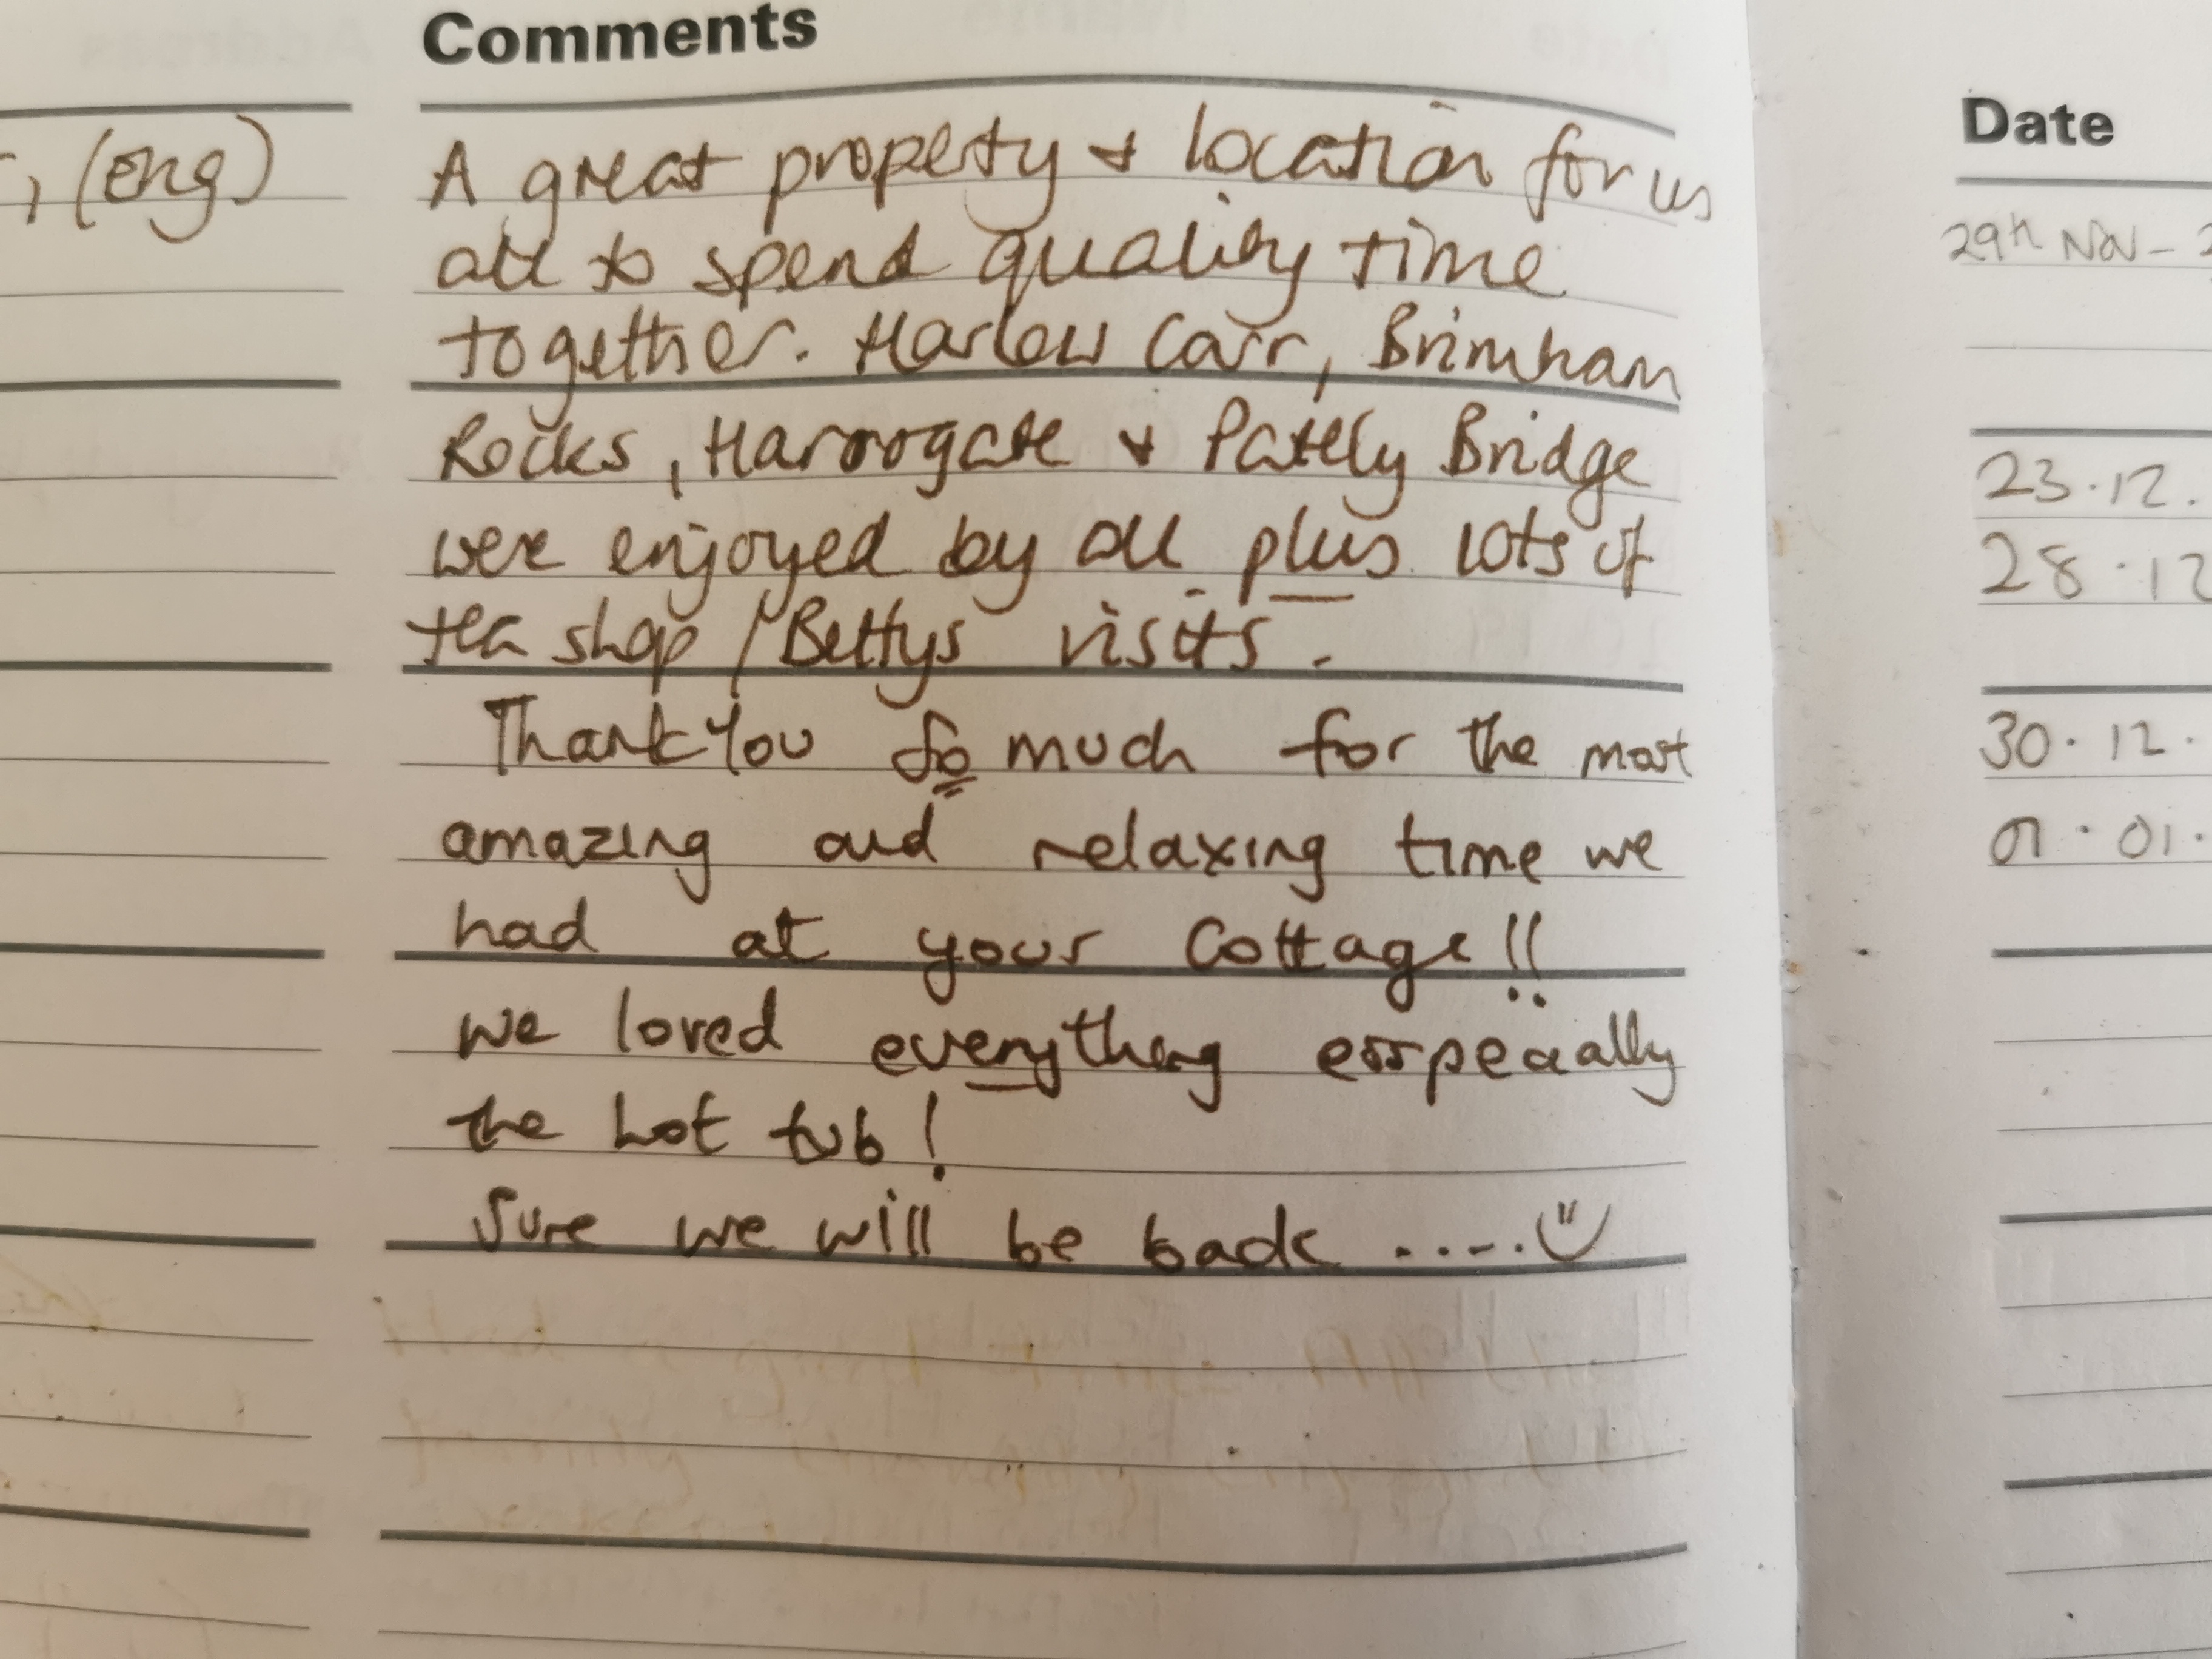 Comments
(Eng)
A great property & location for us
all to spend quality time
together. Harlow Carr, Brimham
Rocks, Harrogate & Pately Bridge
were enjoyed by all plus lots of
tea shop / Bettys visits.
Thank You So much for the most
amazing and relaxing time we
had at your Cottage!!
we loved everything esspecially
the hot tub!
Sure we will be back .....
Date
29th Nov - 2
23.12.
28.12
30.12.
01.01.